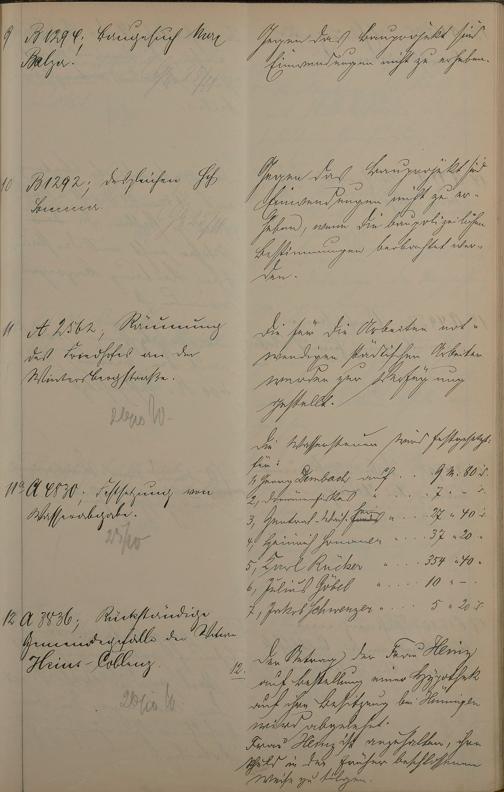 9 B1294; Baugesuch Marx
Balzer.
Gegen das Bauprojekt sind
Einwendungen nicht zu erheben.
10 B1292; desgleichen Hch.
Sommer
Gegen das Bauprojekt sind
Einwendungen nicht zu er-
heben, wenn die baupolizeilichen
Bestimmungen beobachtet wer-
den.
11 A 2562; Räumung
des Friedhofes an der
Wintersbergstraße.
Die für die Arbeiten not-
wendigen städtischen Arbeiter
werden zur Verfügung
gestellt.
11a A 4830; Festsetzung von
Wasserabgabe.
Die Wassersteuer wird festgesetzt
für:
1, Georg Dombach auf . . 9 M. 80 δ
2, . . 7 " - "
3, Zentral- " . . 27 " 40 "
4, Heinrich " . . . 37 " 20 "
5, Karl Rücker " . . . 354 " 40 "
6, Julius Göbel " . . . 10 " - "
7, Jakob Schwenzer " . . . 5 " 20 δ
12 A 3836; Rückständige
Gemeindegefälle der Witwe
Heins-Coblenz.
12. Der Antrag der Frau Heins
auf Bestellung einer Hypothek
auf ihre Besitzung bei Hönningen
wird abgelehnt.
Frau Heins ist anzuhalten, ihre
Schuld in der früher beschlossenen
Weise zu tilgen.